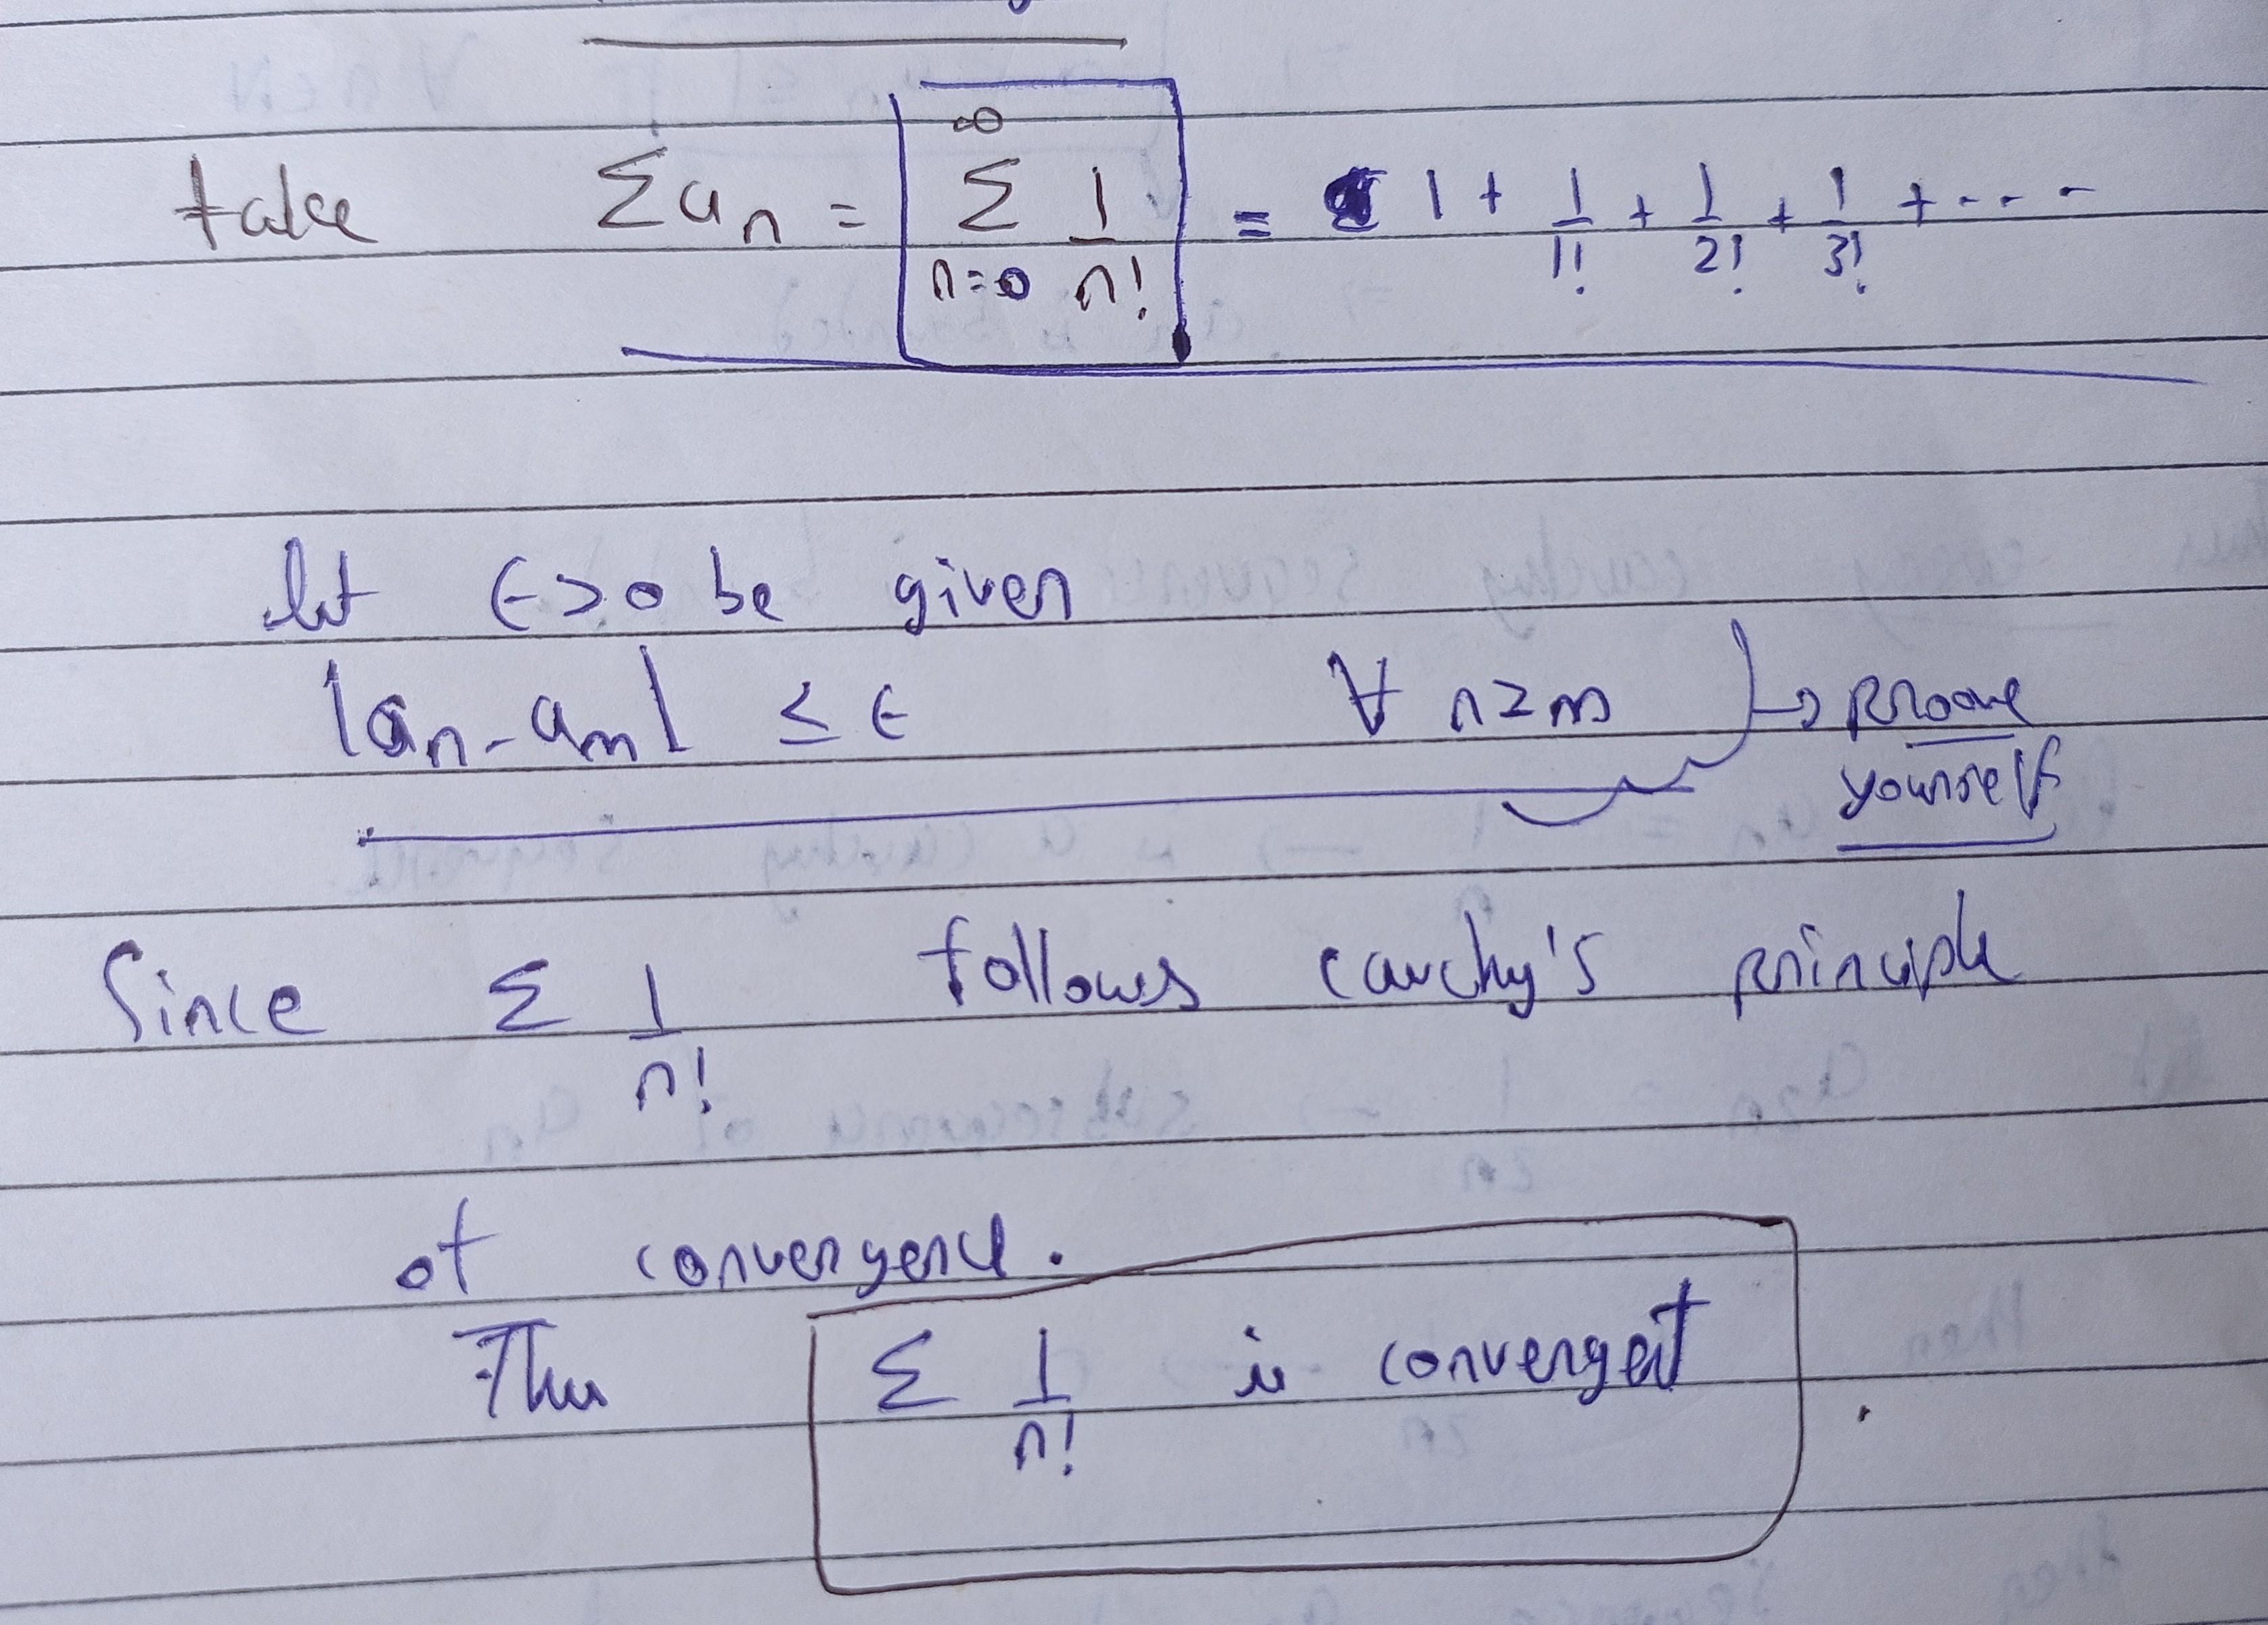 take Σan = ∞ Σ n=0 1/n! = 1 + 1/1! + 1/2! + 1/3! + ----
let ϵ>0 be given
|an - am| ≤ ϵ ∀ n≥m → Proove
yourself
Since Σ 1/n! follows cauchy's principle
of convergence.
Thus Σ 1/n! is convergent.